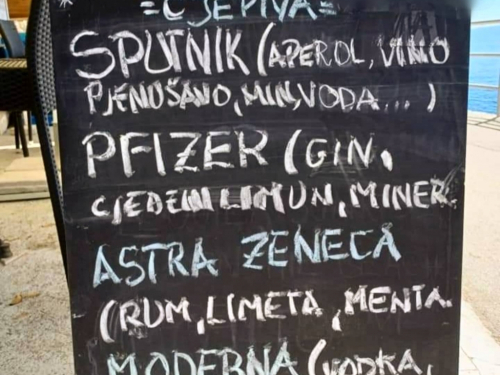 * =CJEPIVA=
SPUTNIK (APEROL, VINO
PJENUŠAVO, MIN, VODA... )
PFIZER (GIN,
CJEĐENI LIMUN, MINER.
ASTRA ZENECA
(RUM, LIMETA, MENTA.
MODERNA (VODKA,